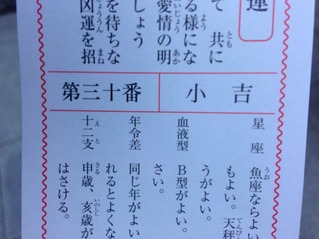 運
て共に
る様にな
愛情の明
しょう
を待ちな
凶運を招
第三十番
小吉
星座 魚座ならよい
もよい。天秤
血液型 B型がよい。
うがよい。
さい。
年令差 同じ年がよい
れるとよくな
十二支 申歳、亥歳が
はさける。